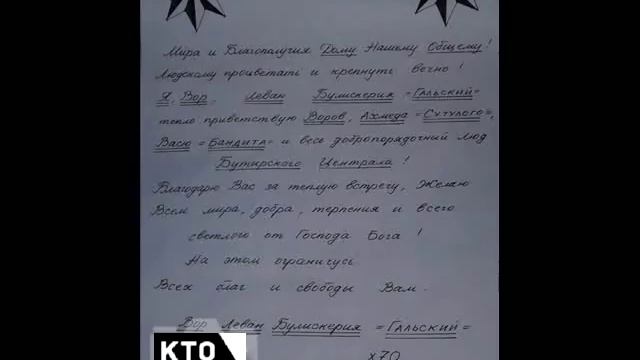 Мира и Благополучия Дому Нашему Общему!
Людскому процветать и крепнуть вечно!
Я, Вор, Леван Булискерия =Гальский=
тепло приветствую Воров, Ахмеда =Сутулого=,
Васю =Бандита= и весь добропорядочный люд
Бутырского Централа!
Благодарю Вас за теплую встречу, Желаю
Всем мира, добра, терпения и всего
светлого от Господа Бога!
На этом ограничусь.
Всех благ и свободы Вам.
Вор Леван Булискерия =Гальский=
х70
КТО